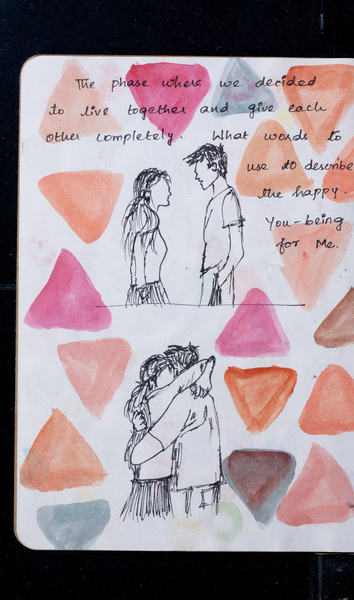 The phase where we decided
to live together and give each
other completely. What words to
use to describe
the happy.
You-being
for Me.